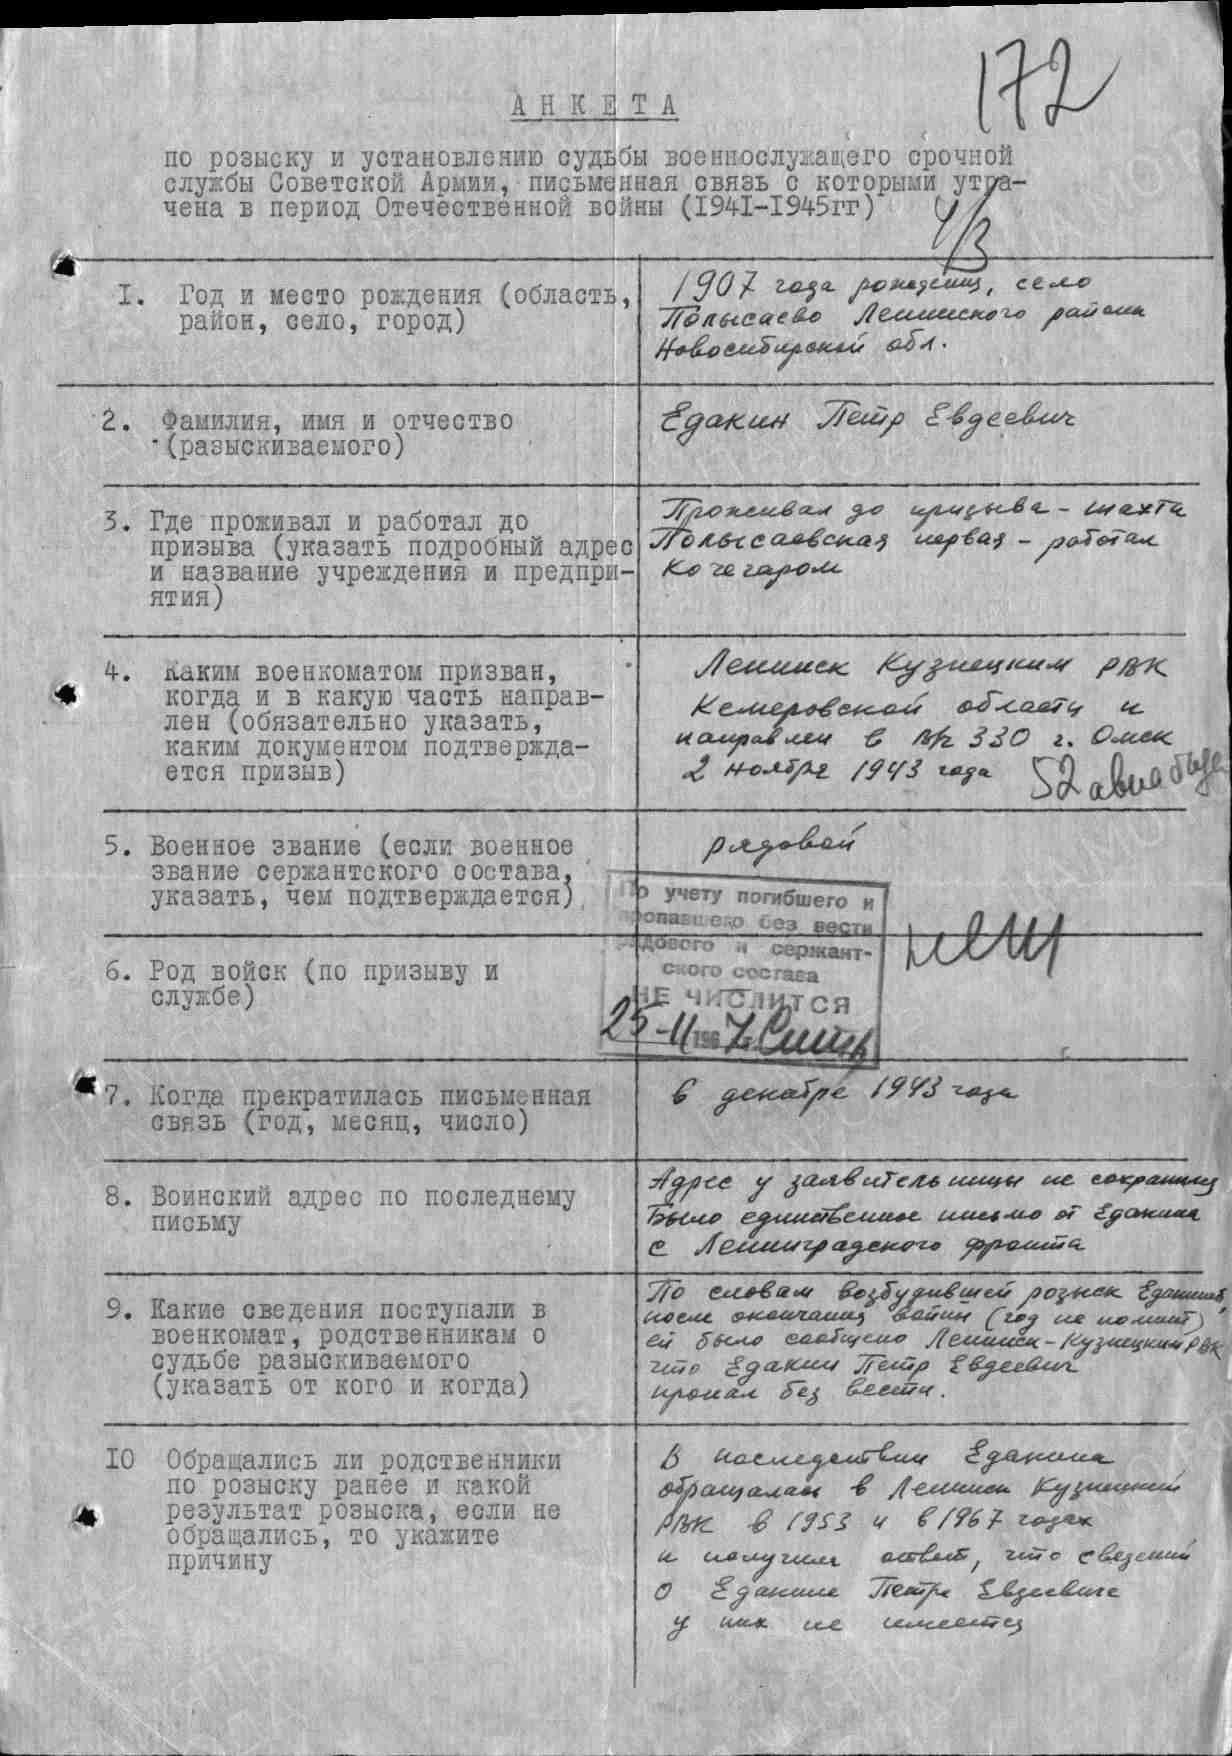 172
АНКЕТА
по розыску и установлению судьбы военнослужащего срочной
службы Советской Армии, письменная связь с которыми утра-
чена в период Отечественной войны (1941-1945гг)
1. Год и место рождения (область,
район, село, город)
1907 года рождения, село
Полысаево Ленинского района
Новосибирской обл.
2. Фамилия, имя и отчество
(разыскиваемого)
Едакин Петр Евдеевич
3. Где проживал и работал до
призыва (указать подробный адрес
и название учреждения и предпри-
ятия)
Проживал до призыва - шахта
Полысаевская первая - работал
кочегаром
4. Каким военкоматом призван,
когда и в какую часть направ-
лен (обязательно указать,
каким документом подтвержда-
ется призыв)
Ленинск Кузнецким РВК
Кемеровской области и
направлен в в/ч 330 г. Омск
2 ноября 1943 года
52 авиа
5. Военное звание (если военное
звание сержантского состава,
указать, чем подтверждается)
рядовой
По учету погибшего и
пропавшего без вести
рядового и сержант-
ского состава
НЕ ЧИСЛИТСЯ
25-11 1967г.
6. Род войск (по призыву и
службе)
7. Когда прекратилась письменная
связь (год, месяц, число)
в декабре 1943 года
8. Воинский адрес по последнему
письму
Адрес у заявительницы не сохранился
Было единственное письмо от Едакина
с Ленинградского фронта
9. Какие сведения поступали в
военкомат, родственникам о
судьбе разыскиваемого
(указать от кого и когда)
По словам возбудившей розыск Едакиной,
после окончания войны (год не помнит)
ей было сообщено Ленинск-Кузнецким РВК
что Едакин Петр Евдеевич
пропал без вести.
10 Обращались ли родственники
по розыску ранее и какой
результат розыска, если не
обращались, то укажите
причину
В последствии Едакина
обращалась в Ленинск Кузнецкий
РВК в 1953 и в 1967 годах
и получила ответ, что сведений
о Едакине Петре Евдеевиче
у них не имеется